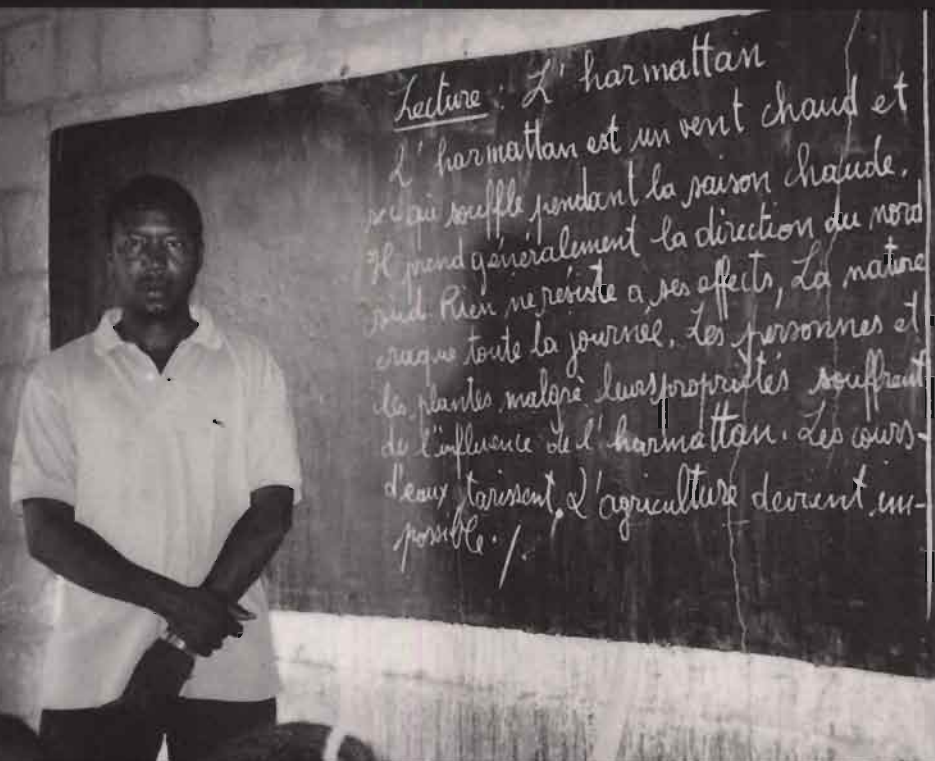 Lecture : L'harmattan
L'harmattan est un vent chaud et
sec qui souffle pendant la saison chaude.
Il prend généralement la direction du nord
sud Rien ne résiste a ses effets, La nature
craque toute la journée. Les personnes et
les plantes malgré leurs propriétés souffrent
de l'influence de l'harmattan. Les cours-
d'eaux tarissent. L'agriculture devient im-
possible. /.